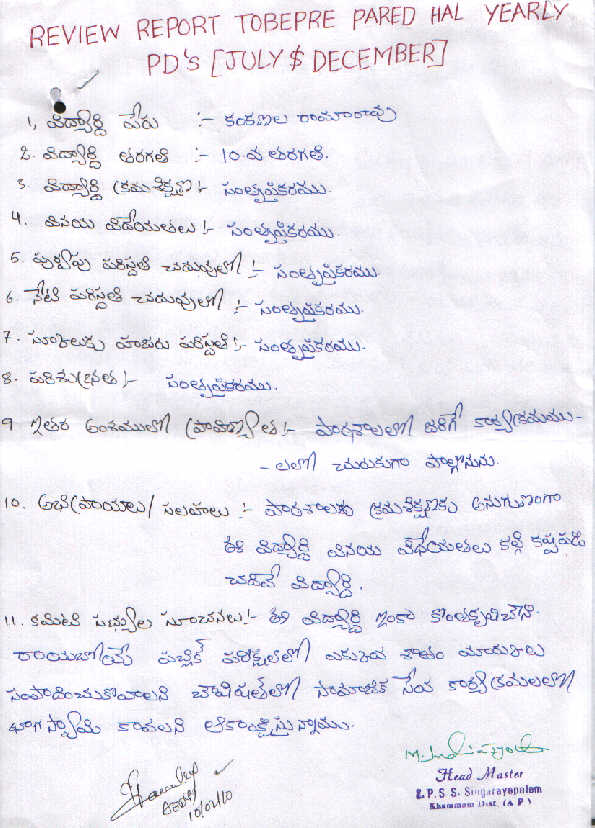 REVIEW REPORT TOBEPRE PARED HAL YEARLY
PD'S [JULY $ DECEMBER]
1, విద్యార్ధి పేరు :- కంకణాల రామారావు
2. విద్యార్ధి తరగతి :- 10 వ తరగతి.
3. విద్యార్ధి క్రమశిక్షణ :- సంతృప్తికరము.
4. వినయ విధేయతలు :- సంతృప్తికరము.
5. పూర్వపు పరిస్థితి చదువులో :- సంతృప్తికరము.
6. నేటి పరిస్థితి చదువులో :- సంతృప్తికరము.
7. స్కూలుకు హాజరు పరిస్థితి :- సంతృప్తికరము.
8. పరిశుభ్రత :- సంతృప్తికరము.
9 ఇతర అంశములలో ప్రావీణ్యత :- పాఠశాలలో జరిగే కార్యక్రమము-
- లలో చురుకుగా పాల్గొనును.
10. అభిప్రాయాలు/ సలహాలు :- పాఠశాలకు క్రమశిక్షణకు అనుగుణంగా
ఈ విద్యార్ధి వినయ విధేయతలు కల్గి కష్టపడి
చదివే విద్యార్ధి.
11. కమిటి సభ్యుల సూచనలు :- ఈ విద్యార్ధి ఇంకా కొంత కృషిచేసి
రాయబోయే పబ్లిక్ పరీక్షలలో ఎక్కువ శాతం మార్కులు
సంపాదించుకోవాలని భవిష్యత్‌లో సామాజిక సేవ కార్యక్రమాలలో
భాగస్వామి కావాలని ఆకాంక్షిస్తున్నాము.
Head Master
Z.P.S.S. Singarayapalem
Khammam Dist. (A P)
10/02/10